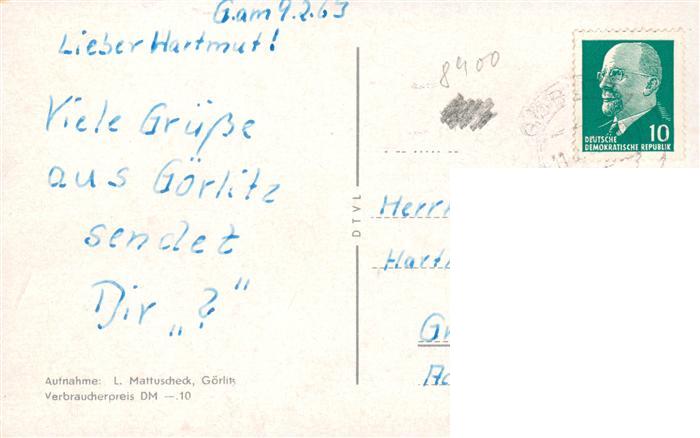 G. am 9.2.63
Lieber Hartmut!
Viele Grüße
aus Görlitz
sendet
Dir „?“
Aufnahme: L. Mattuscheck, Görlitz
Verbraucherpreis DM —.10
DTVL
8400
10
DEUTSCHE
DEMOKRATISCHE REPUBLIK
Herrn